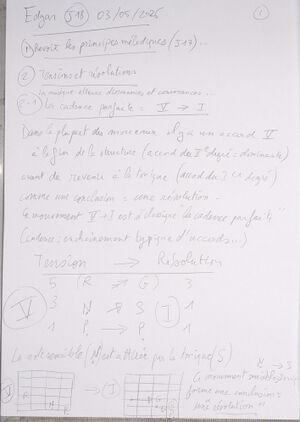 Edgar J18 03/05/2026 1
1 Revoir les principes mélodiques (J17)...
2 Tensions et résolutions
La musique alterne dissonances et consonances...
2-1 La cadence parfaite = V → I
Dans la plupart des morceaux il y a un accord V
à la fin de la structure (accord du V degré = dominante)
avant de revenir à la tonique (accord du degré)
comme une conclusion = une résolution.
Ce mouvement V → I est d la "cadence parfaite"
(cadence : enchaînement typique d'accords...)
Tension → Résolution
5 (R G) 3
V 3 N → S I
1 P → P 1
La note sensible (N) est attirée par la tonique (S)
N → S
V → I
Ce mouvement mélodique
forme une conclusion
"une résolution"